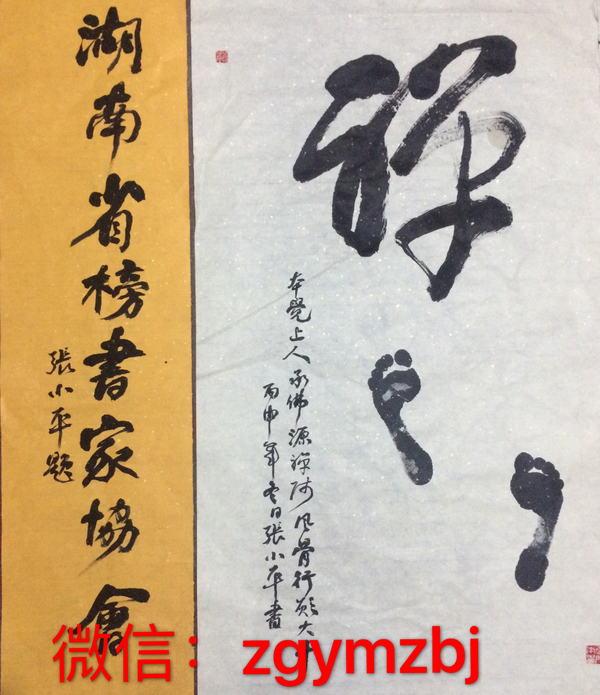 湖南省榜書家協會
張小平題
禪
本覺上人承佛源禅师风骨行愿大
丙申年冬日張小平書
微信：zgymzbj